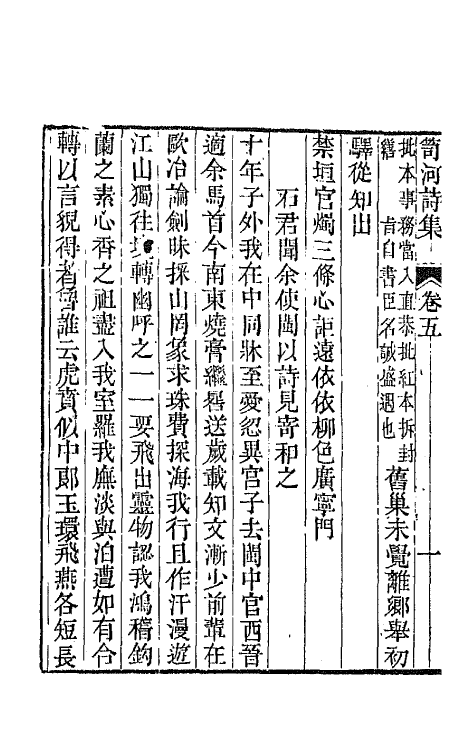 笥河詩集 卷五 一
批本事務當入直恭批紅本拆封
旨自書臣名誠盛遇也
舊巢未覺離鄉舉初
驛從知出
禁垣官燭三條心詎遠依依柳色廣寧門
石君聞余使閩以詩見寄和之
十年子外我在中同牀至愛忽異宮子去閩中官西晉
適余馬首今南東燒膏繼晷送歲載知文漸少前輩在
歐冶論劍昧採山罔象求珠費探海我行且作汗漫遊
江山獨往轉幽呼之一一要飛出靈物認我鴻稽鈎
蘭之素心香之祖盡入我室羅我廡淡與泊遭如有合
轉以言貌得者魯誰云虎賁似中郎玉環飛燕各短長